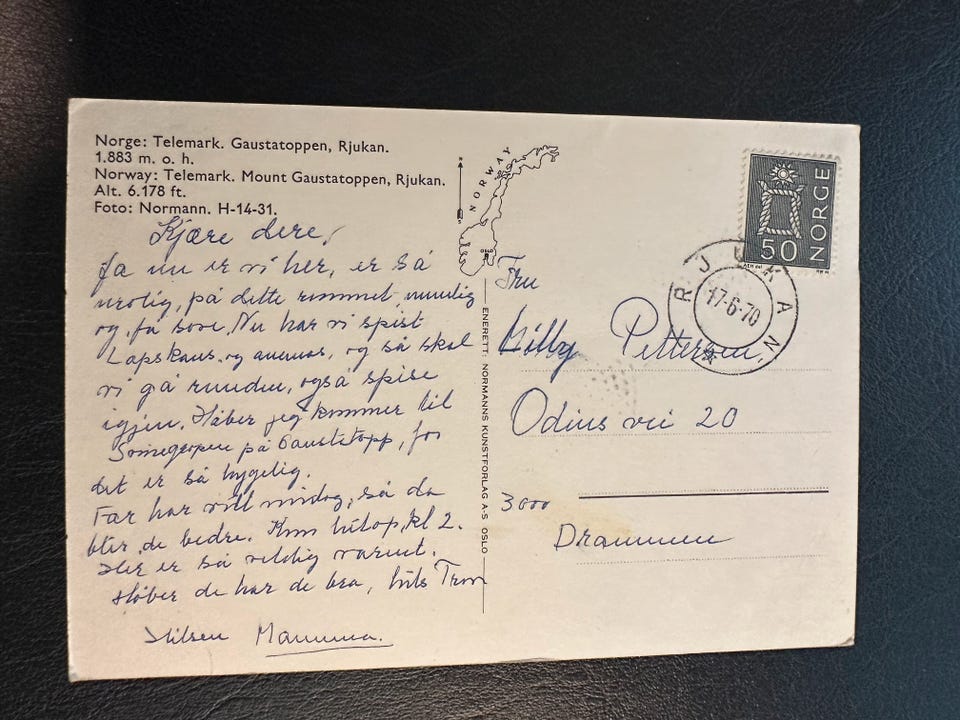 Norge: Telemark. Gaustatoppen, Rjukan.
1.883 m. o. h.
Norway: Telemark. Mount Gaustatoppen, Rjukan.
Alt. 6.178 ft.
Foto: Normann. H-14-31.
NORWAY
OSLO
ENERETT: NORMANNS KUNSTFORLAG A-S OSLO
NORGE
50
RJUKAN
17-6-70
Kjære dere,
Ja nu er vi her, er så
urolig, på dette rommet, umulig
og få sove. Nu har vi spist
Lapskaus, og ananas, og så skal
vi gå runden, også spise
igjen. Håber jeg kommer til
på Gaustatopp, for
det er så hygelig.
Far har vitt midag, så da
blir de bedre. Kom hitop, kl 2.
Her er så veldig varmt.
Håber de har de bra, hils Tron
Hilsen Mamma.
Fru
Pettersen,
Odins vei 20
3000
Drammen